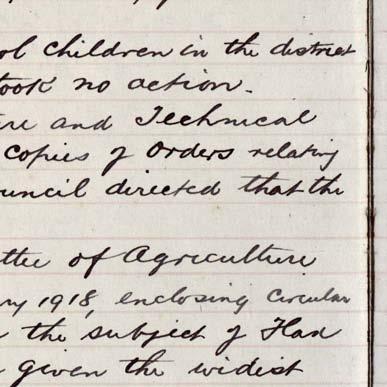 ol children in the district
took no action.
ure and Technical
copies of Orders relating
ouncil directed that the
ttee of Agriculture
ry 1918, enclosing Circular
the subject of Flax
given the widest